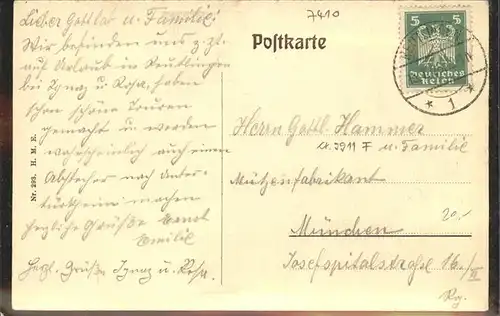 Lieber Gottlob u. Familie!
Wir befinden uns z. Zt.
auf Urlaub in Reutlingen
bei Ignaz u. Rosa, haben
schon schöne Touren
gemacht u. werden
wahrscheinlich auch einen
Abstecher nach Unter-
türkheim machen
herzliche Grüße Ernst
Emilie
Herzl. Grüße Ignaz u. Rosa.
Nr. 293. H. M. R.
7410
Postkarte
5 5
Deutsches
Reich
* 1 *
Herrn Gottl. Hammer
u. Familie
Mützenfabrikant
20,-
München
Josefspitalstraße 16/II